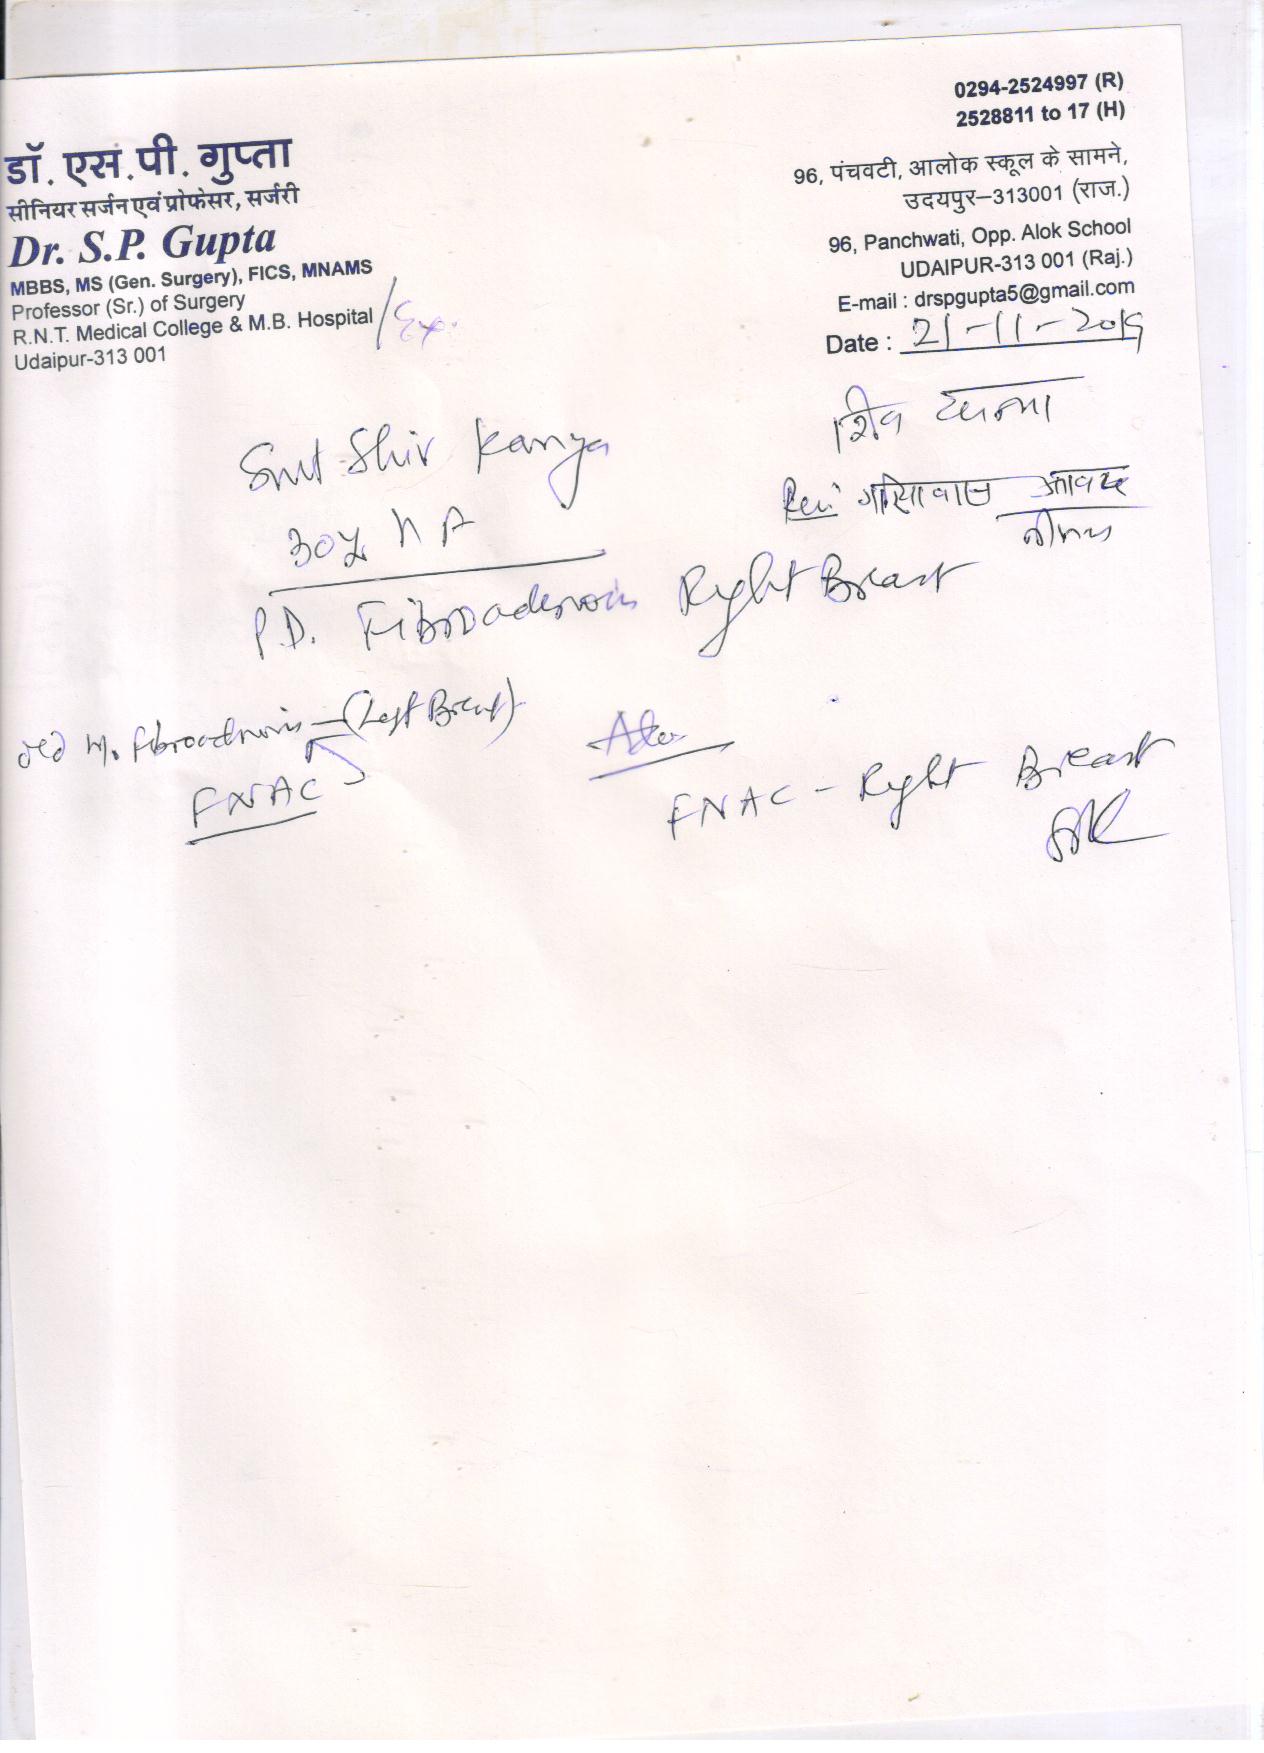 डॉ. एस.पी. गुप्ता
सीनियर सर्जन एवं प्रोफेसर, सर्जरी
Dr. S.P. Gupta
MBBS, MS (Gen. Surgery), FICS, MNAMS
Professor (Sr.) of Surgery
R.N.T. Medical College & M.B. Hospital / Ex.
Udaipur-313 001
0294-2524997 (R)
2528811 to 17 (H)
96, पंचवटी, आलोक स्कूल के सामने,
उदयपुर–313001 (राज.)
96, Panchwati, Opp. Alok School
UDAIPUR-313 001 (Raj.)
E-mail : drspgupta5@gmail.com
Date : 21-11-2019
शिव
Smt Shiv Kanya
30y
P.D. Fibroadenosis Right Breast
(Left Breast)
FNAC
FNAC - Right Breast